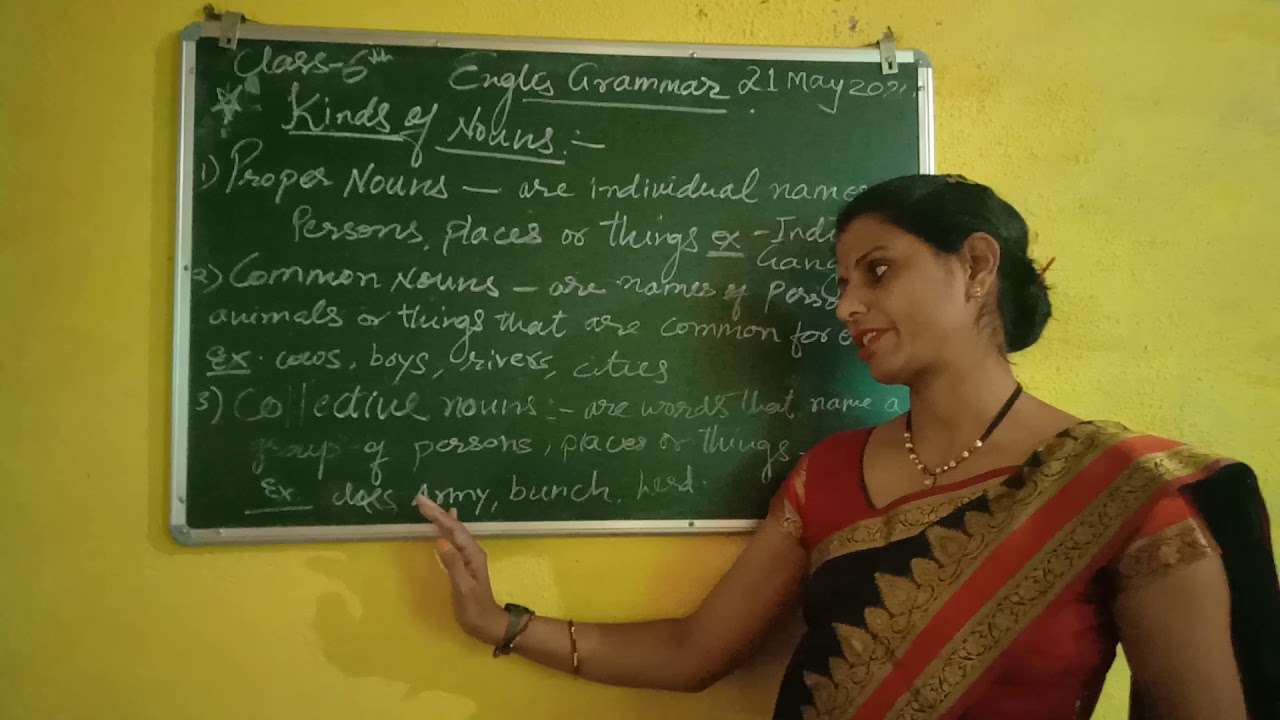 Class-5th Engls Grammar 21 May
Kinds of Nouns :-
1) Proper Nouns — are individual names
Persons, places or things ex - Indi
Gang
2) Common Nouns — are names of pers
animals or things that are common for e
Ex. cows, boys, rivers, cities
3) Collective nouns :- are words that name a
group of persons, places or things -
Ex class, Army, bunch, herd.